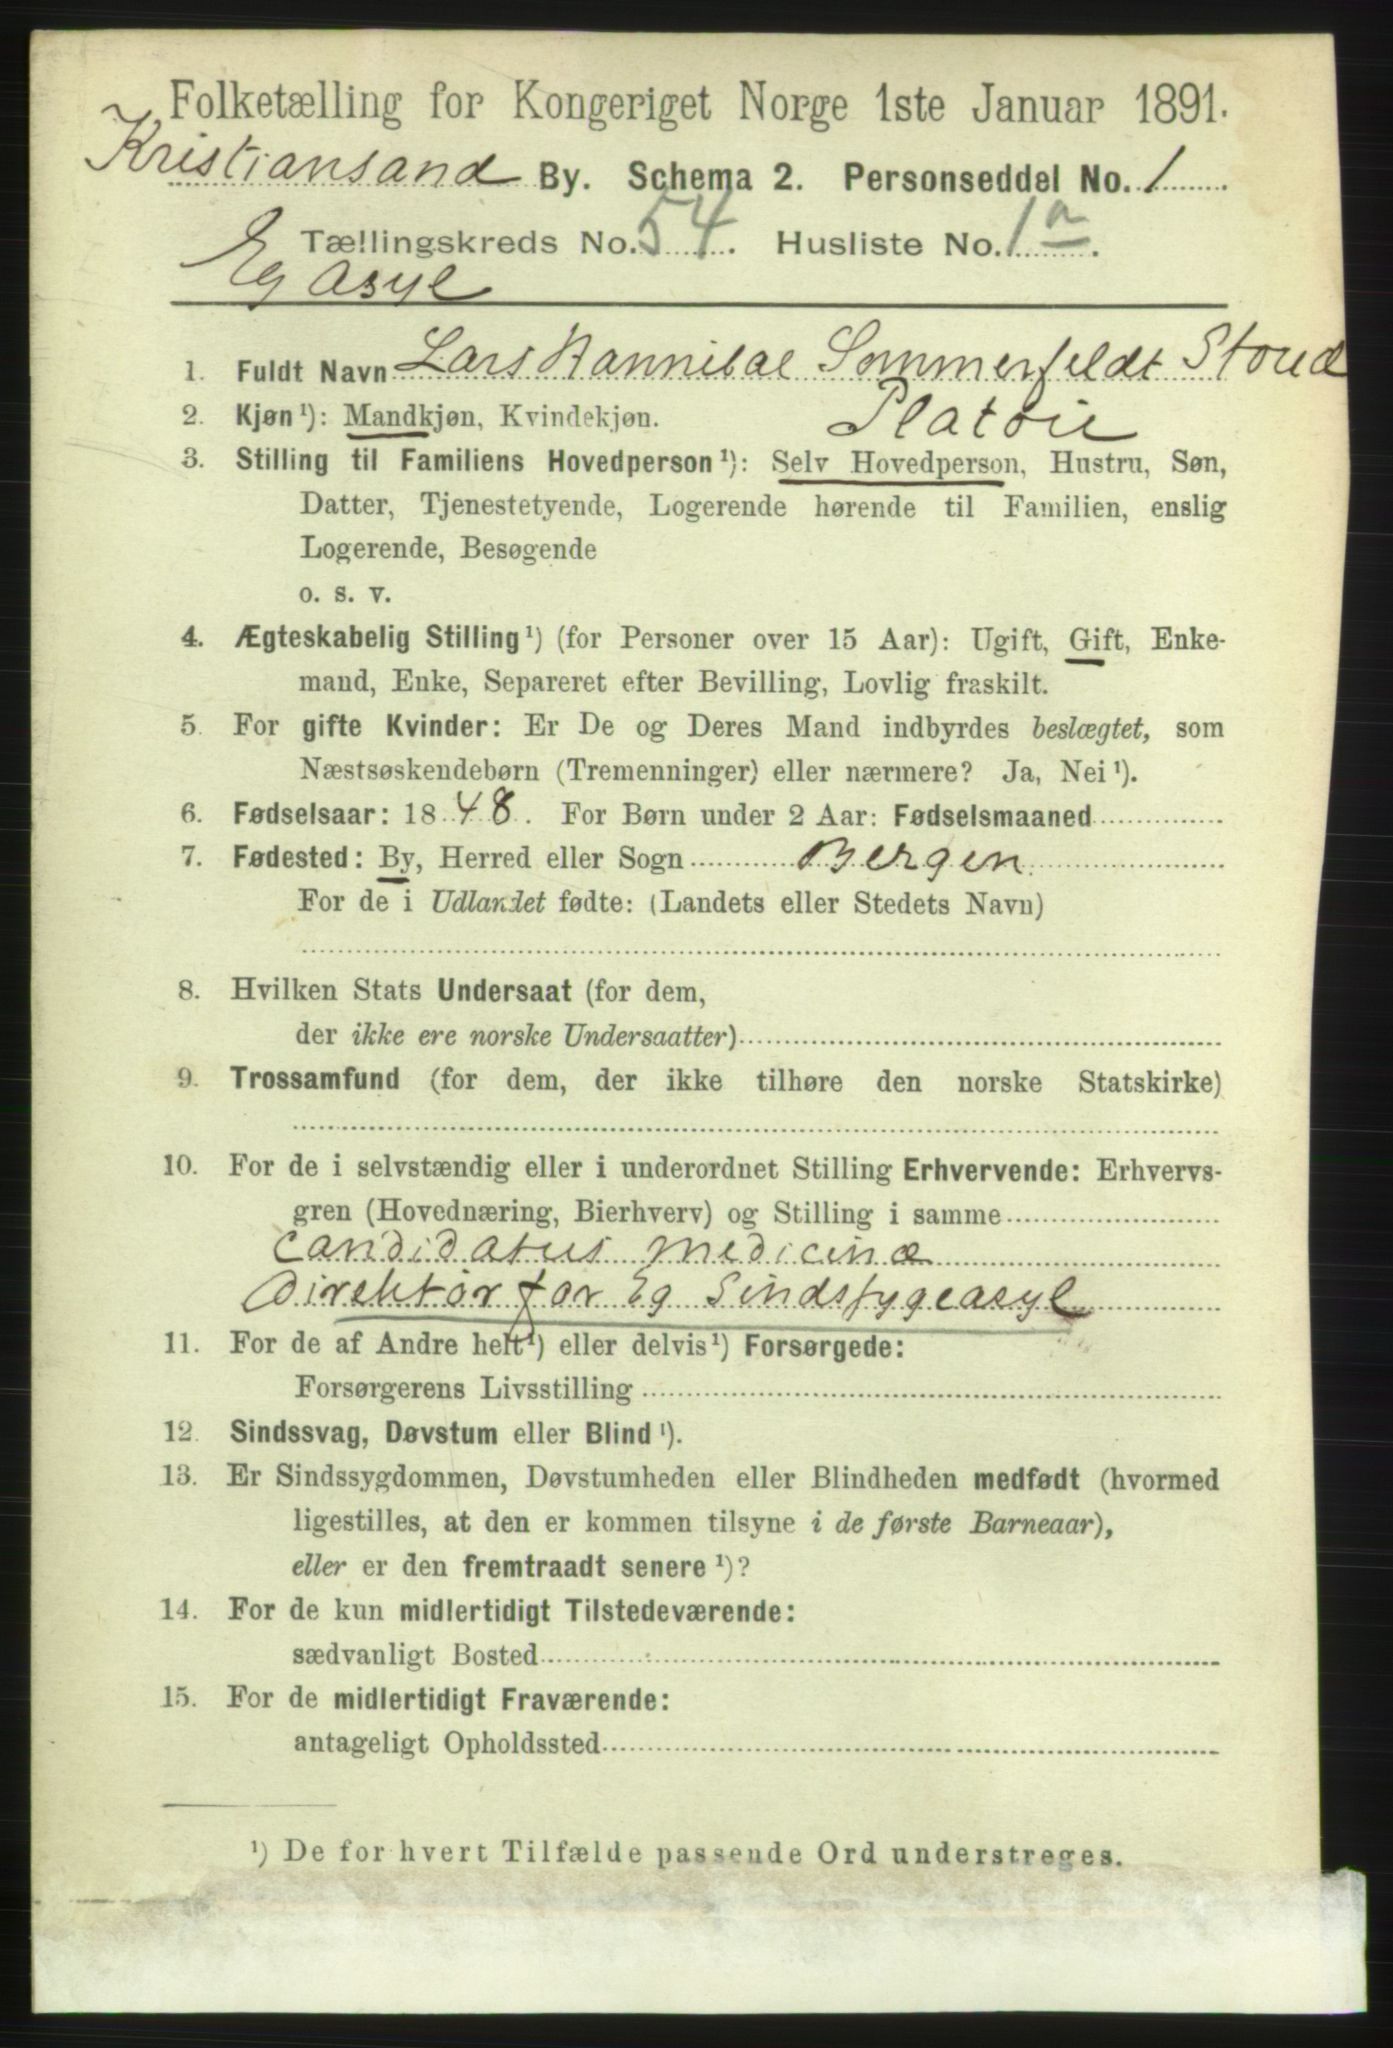 Folketælling for Kongeriget Norge 1ste Januar 1891.
Kristiansand By. Schema 2. Personseddel No. 1
Tællingskreds No. 54. Husliste No. 1a.
Eg Asyl
1. Fuldt Navn Lars Hannibal Sommerfeldt Stoud
Platou
2. Kjøn¹): Mandkjøn, Kvindekjøn.
3. Stilling til Familiens Hovedperson¹): Selv Hovedperson, Hustru, Søn,
Datter, Tjenestetyende, Logerende hørende til Familien, enslig
Logerende, Besøgende
o. s. v.
4. Ægteskabelig Stilling¹) (for Personer over 15 Aar): Ugift, Gift, Enke-
mand, Enke, Separeret efter Bevilling, Lovlig fraskilt.
5. For gifte Kvinder: Er De og Deres Mand indbyrdes beslægtet, som
Næstsøskendebørn (Tremenninger) eller nærmere? Ja, Nei¹).
6. Fødselsaar: 1848. For Børn under 2 Aar: Fødselsmaaned
7. Fødested: By, Herred eller Sogn Bergen
For de i Udlandet fødte: (Landets eller Stedets Navn)
8. Hvilken Stats Undersaat (for dem,
der ikke ere norske Undersaatter)
9. Trossamfund (for dem, der ikke tilhøre den norske Statskirke)
10. For de i selvstændig eller i underordnet Stilling Erhvervende: Erhvervs-
gren (Hovednæring, Bierhverv) og Stilling i samme
candidatus medicinæ
Direktør for Eg Sindsfygeasyl
11. For de af Andre helt¹) eller delvis¹) Forsørgede:
Forsørgerens Livsstilling
12. Sindssvag, Døvstum eller Blind¹).
13. Er Sindssygdommen, Døvstumheden eller Blindheden medfødt (hvormed
ligestilles, at den er kommen tilsyne i de første Barneaar),
eller er den fremtraadt senere¹)?
14. For de kun midlertidigt Tilstedeværende:
sædvanligt Bosted
15. For de midlertidigt Fraværende:
antageligt Opholdssted
¹) De for hvert Tilfælde passende Ord understreges.